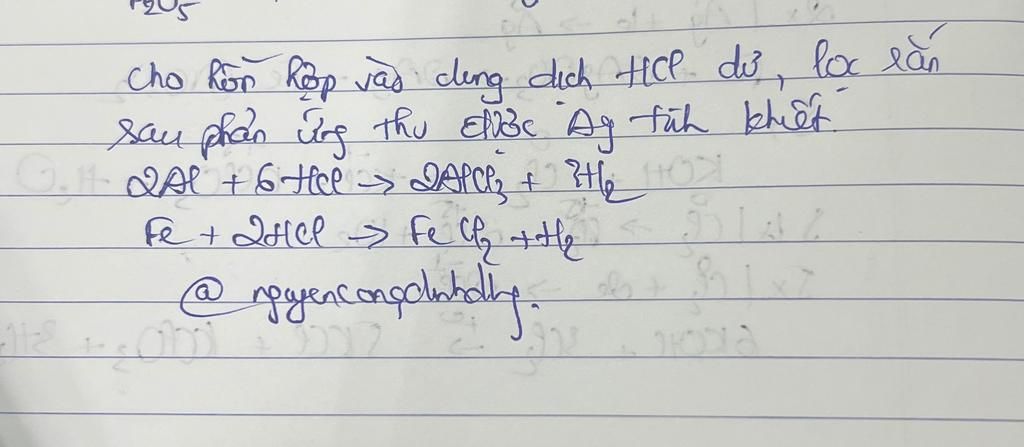 P2O5
Cho hỗn hợp vào dung dịch HCl dư, lọc rắn
sau phản ứng thu được Ag tinh khiết
2Al + 6HCl → 2AlCl3 + 3H2
Fe + 2HCl → FeCl2 + H2